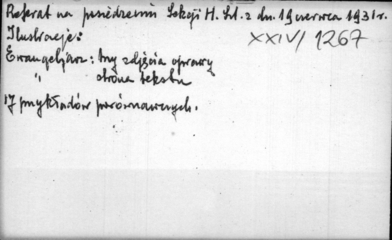 Referat na posiedzeniu Sekcji H. Szt. z dn. 19 czerwca 1931 r.
XXIV/1267
Ilustracje:
Ewangeljarz: trzy zdjęcia oprawy
" strona tekstu
17 przykładów porównawczych.